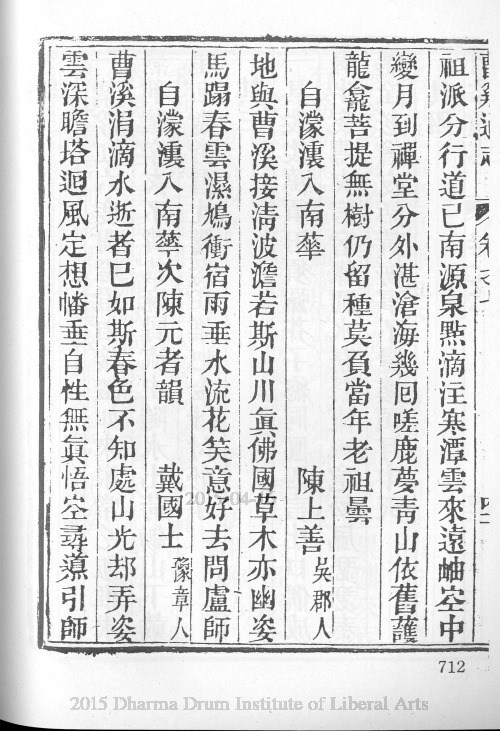 祖派分行道已南源泉點滴注寒潭雲來遠岫空中
變月到禪堂分外湛滄海幾回嗟鹿夢青山依舊護
龍龕菩提無樹仍留種莫負當年老祖曇
自濛瀼入南華　陳上善吳郡人
地與曹溪接淸波澹若斯山川眞佛國草木亦幽姿
馬蹋春雲濕鳩衝宿雨垂水流花笑意好去問盧師
自濛瀼入南華次陳元者韻　戴國士豫章人
曹溪涓滴水逝者已如斯春色不知處山光却弄姿
雲深瞻塔迴風定想幡垂自性無眞悟空尋引師
712
2015 Dharma Drum Institute of Liberal Arts